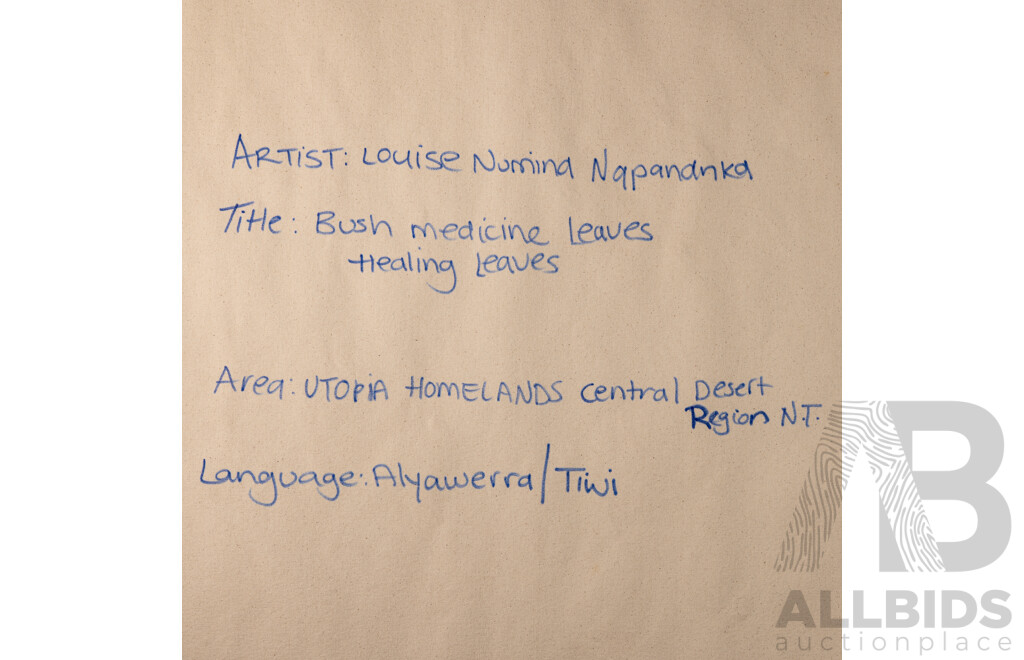 ARTIST: Louise Numina Napananka
Title: Bush medicine Leaves
Healing Leaves
Area: UTOPIA HOMELANDS Central Desert
Region N.T.
Language: Alyawerra/Tiwi
ALLBIDS
auctionplace